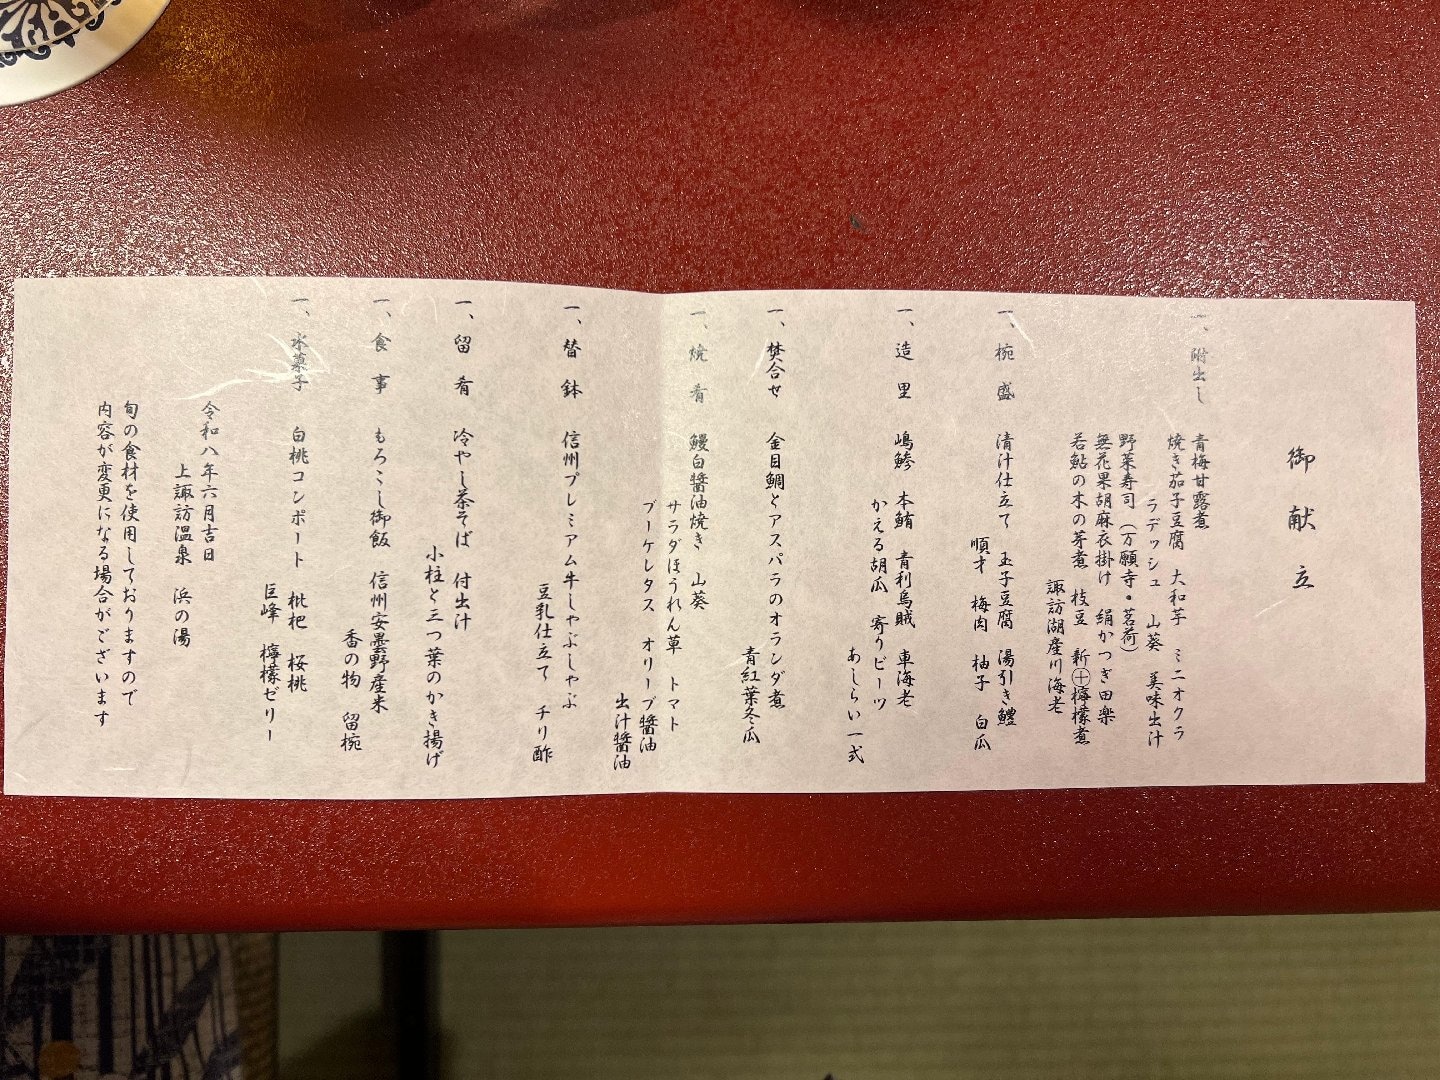 御献立
一、附出し 青梅甘露煮
焼き茄子豆腐 大和芋 ミニオクラ
ラデッシュ 山葵 美味出汁
野菜寿司（万願寺・茗荷）
無花果胡麻衣掛け 絹かつぎ田楽
若鮎の木の芽煮 枝豆 新㊉檸檬煮
諏訪湖産川海老
一、椀盛 清汁仕立て 玉子豆腐 湯引き鱧
順才 梅肉 柚子 白瓜
一、造里 嶋鯵 本鮪 青利烏賊 車海老
かえる胡瓜 寄りビーツ
あしらい一式
一、焚合せ 金目鯛とアスパラのオランダ煮
青紅葉冬瓜
一、焼肴 鰻白醤油焼き 山葵
サラダほうれん草 トマト
ブーケレタス オリーブ醤油
出汁醤油
一、替鉢 信州プレミアム牛しゃぶしゃぶ
豆乳仕立て チリ酢
一、留肴 冷やし茶そば 付出汁
小柱と三つ葉のかき揚げ
一、食事 もろこし御飯 信州安曇野産米
香の物 留椀
一、水菓子 白桃コンポート 枇杷 桜桃
巨峰 檸檬ゼリー
令和八年六月吉日
上諏訪温泉 浜の湯
旬の食材を使用しておりますので
内容が変更になる場合がございます